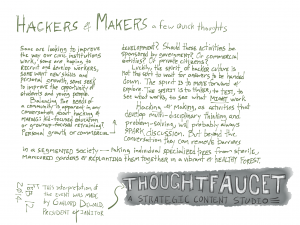 HACKERS & MAKERS a few quick thoughts
Some are looking to improve
the way our civic institutions
work, some are hoping to
recruit for service workers,
some want new skills and
personal growth, some seek
to improve the opportunity of
students and young people.
Balancing the needs of
a community is apparent in any
conversation about hacking &
making: kid-focused education
or grownup-focused retraining?
Personal growth or commercial
development? Should these activities be
sponsored by government? Or commercial
entities? Or private citizens?
Luckily, the spirit of hacker culture is
not the sort to wait for answers to be handed
down. The spirit is to move forward &
explore. The spirit is to tinker, to test, to
see what works, to see what MIGHT work.
Hacking and Making, as activities that
develop multi-disciplinary thinking and
problem-solving, will probably always
SPARK DISCUSSION. But beyond the
conversation they can remove barriers
in a segmented society—taking individual specialized trees from sterile,
manicured gardens & replanting them together in a vibrant & HEALTHY FOREST.
This interpretation of
the event was made
by
PRESIDENT & JANITOR
THOUGHT FAUCET
A STRATEGIC CONTENT STUDIO